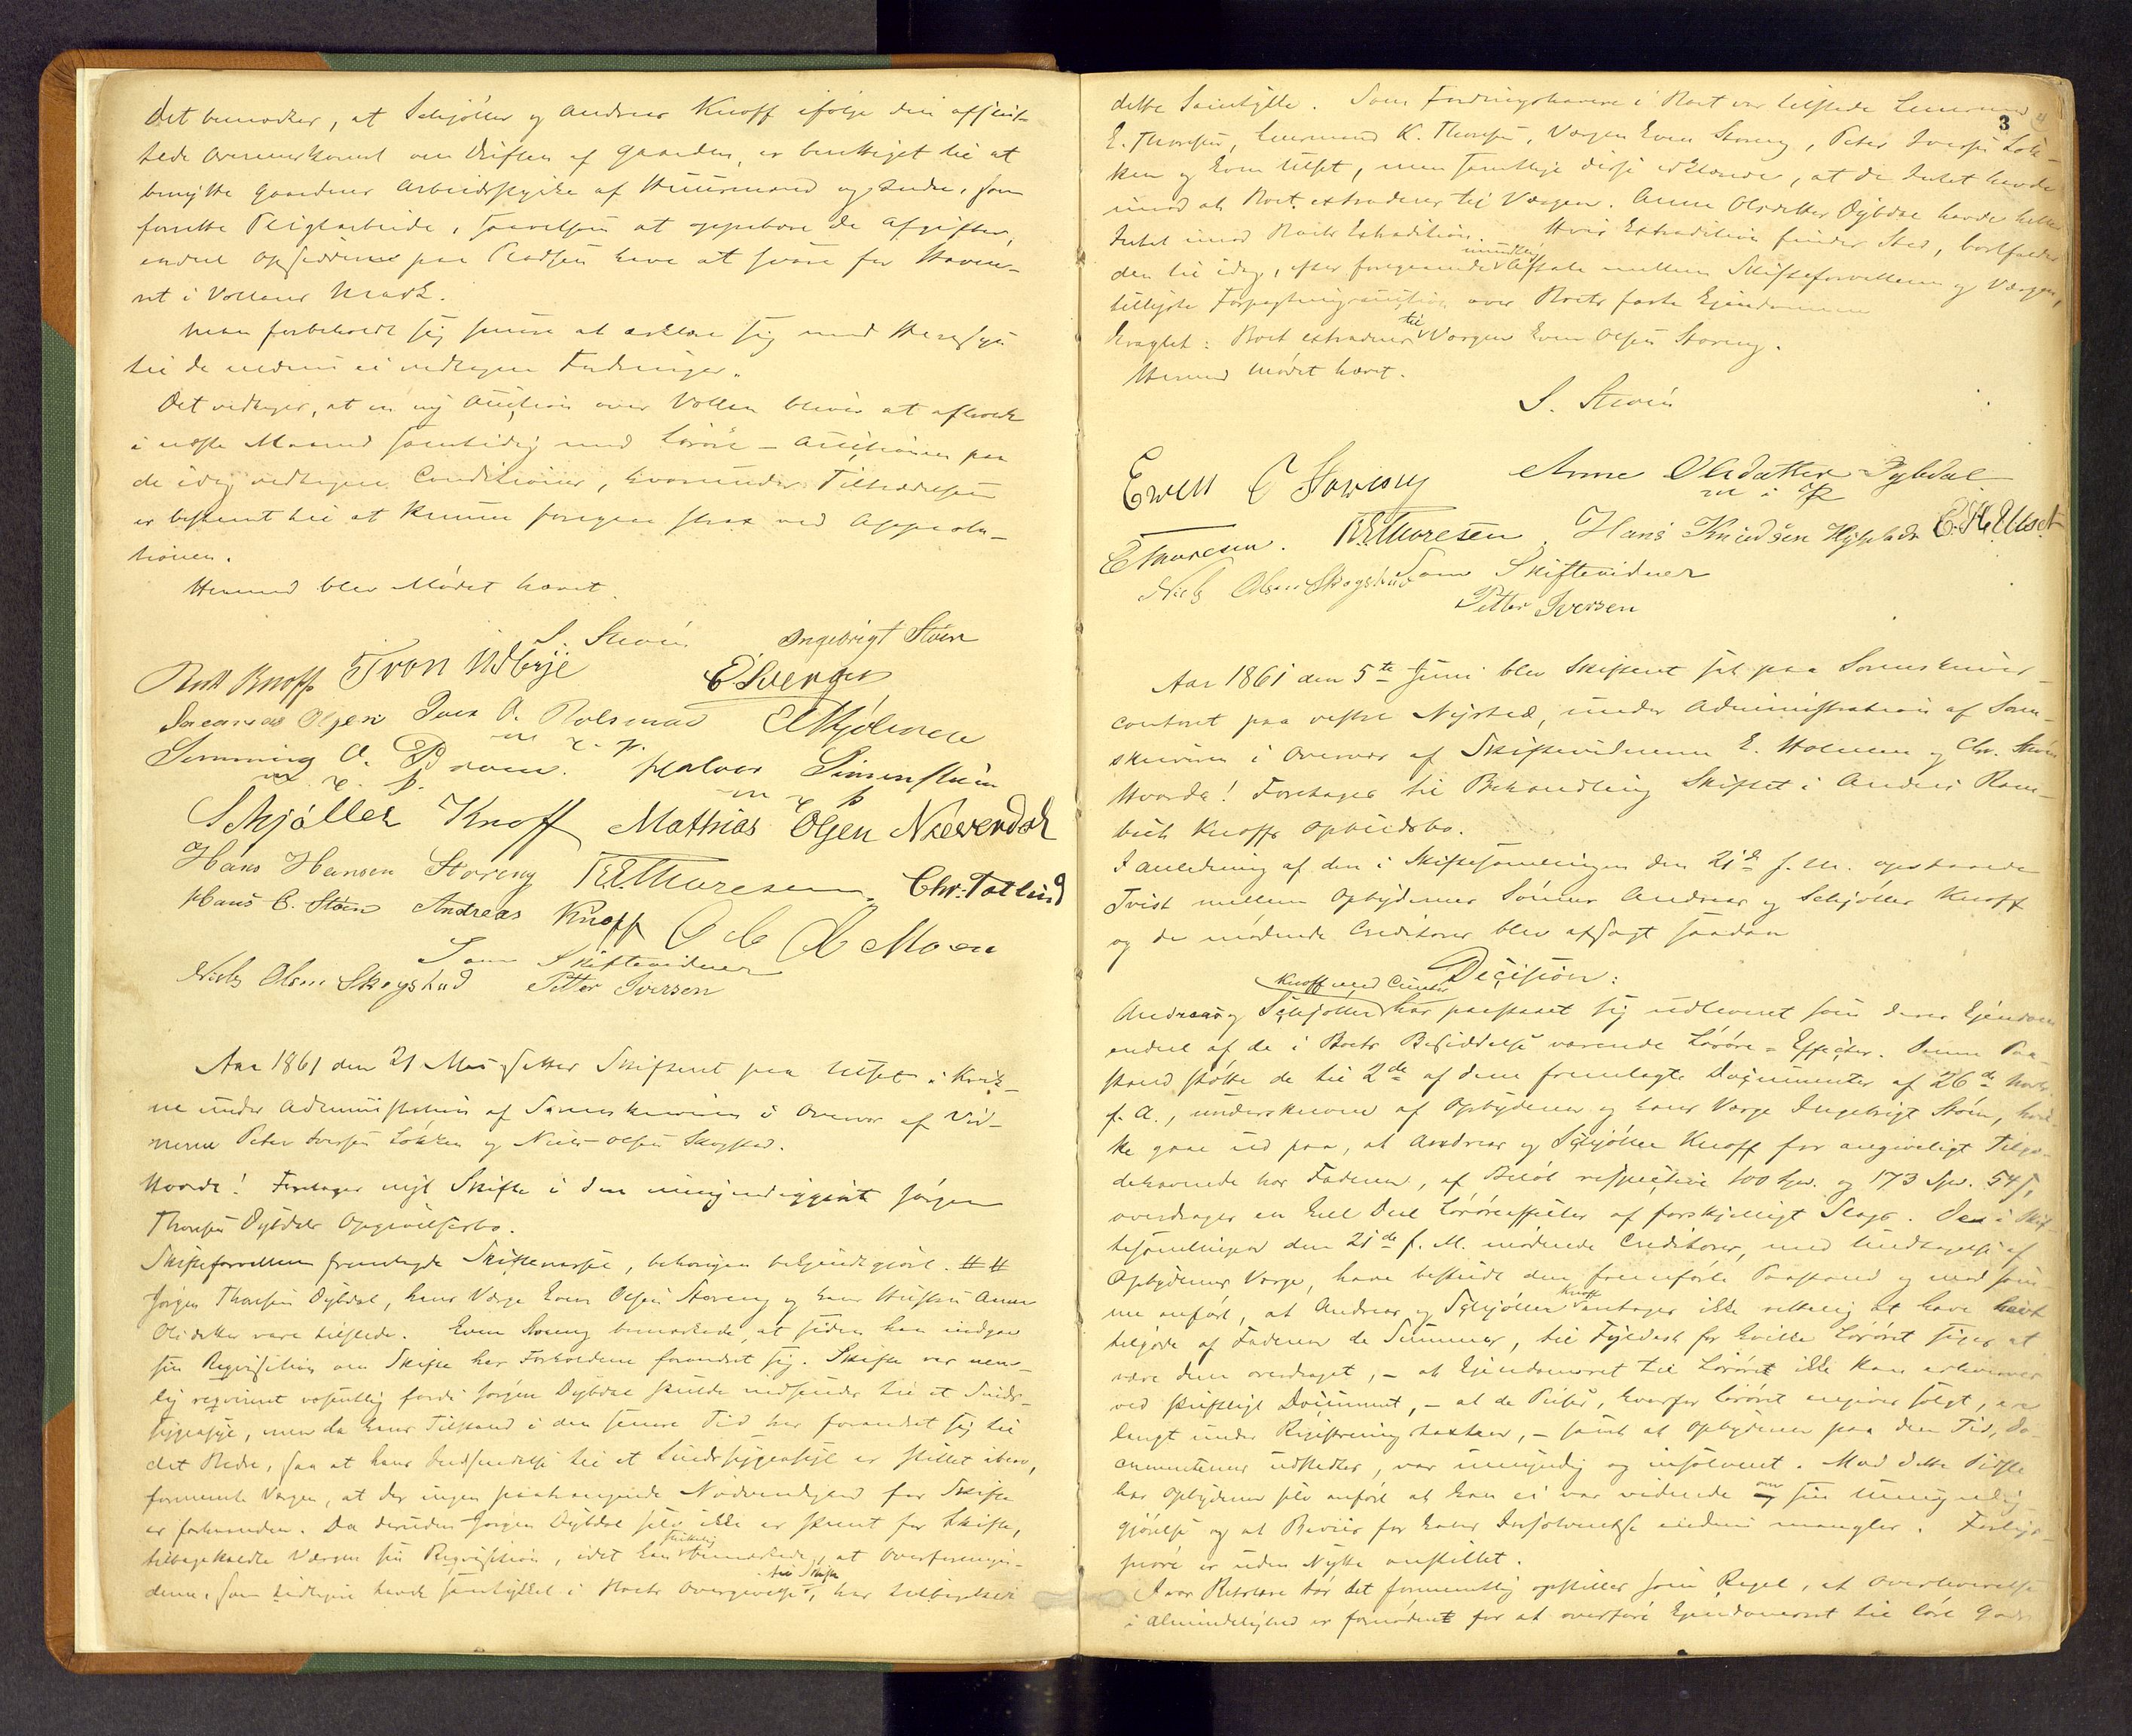 Det bemærkes, at Schjøller og Andreas Knoff ifølge den afslut-
tede Overenskomst om Driften af Gaarden, er berettiget til at
benytte Gaardens Arbeidsstyrke af Huusmænd og Andre, som
forrette Pligtarbeide, saavelsom at oppebære de Afgifter,
endeel Opsiddere paa Pladsen have at svare for Havne-
ret i Vollens Mark.
Man forbeholdt sig senere at erklære sig med Hensyn
til de endnu ei vedtagne Fordringer.
Det vedtages, at en ny Auction over Vollen bliver at afholde
i næste Maaned samtidig med Løsøre-Auctionen paa
de idag vedtagne Conditioner, hvorunder Tiltrædelsen
er bestemt til at kunne foregaae strax ved Approba-
tionen.
Hermed blev Mødet hævet.
S. Ingebrigt Støen
Knoff Tron Udbye E. Sverger
Olsen Iver O. Rolsmoe
m. p.
Simming O. Broen. Halvor Simensen
m. p. m p
Schjøller Knoff Mathias Olsen Næverdal
Hans Hansen Storeng K. E. Thoresen Chr. Tatlid
Hans E. Støen Andreas Knoff O Moen
Som Skiftevidner
Niels Olsen Skogstad Petter Iversen
Aar 1861 den 21 Mai sattes Skifteret paa Ulset i Kvik-
ne under Administration af Sorenskriveren i Overvær af Vid-
nerne Peter Iversen Løkken og Niels Olsen Skogstad.
Hvorda! Foretages nyt Skifte i den umyndiggjorte Jørgen
Thoresen Dybdals Opgivelsesbo.
Skifteforvalteren fremlagde Skiftevarsel, behørigen bekjendtgjort. ##
Jørgen Thoresen Dybdal, hans Værge Even Olsen Storeng og hans Hustru Anne
Olsdatter vare tilstede. Even Storeng bemærkede, at siden han indgav
sin Reqvisition om Skifte har Forholdene forandret sig. Skifte var nem-
lig reqvireret væsentlig fordi Jørgen Dybdal skulde indsendes til et Sinds-
sygeasyl, men da hans Tilstand i den senere Tid har forandret sig til
det Bedre, saa at hans Indsendelse til et Sindssygeasyl er stillet i bero,
formeente Værgen, at der ingen paatrængende Nødvendighed for Skifte
er forhaanden. Da desuden Jørgen Dybdal selv ikke er stemt for Skifte,
tilbagekaldte Værgen sin Reqvisition, idet han bemærkede, at Overformynder-
dene, som tidligere havde samtykket i Boets Overgivelse til Skifte, har tilbagekaldt
3
dette Samtykke. Som Fordringshavere i Boet var tilstede Lensmand
E. Thoresen, Lensmand K. Thoresen, Værgen Even Storeng, Peter Iversen Løk-
ken og Even Ulset, men samtlige disse erklærede, at de Intet havde
imod at Boet extraderes til Værgen. Anne Olsdatter Dybdal havde heller
Intet imod Boets Extradition. Hvis Extradition finder Sted, bortfalder
den til idag, efter foregaaende mundlig Aftale mellem Skifteforvalteren og Værgen,
tillyste Forpagtningsauction over Boets faste Eiendomme
Eragtet: Boet extraderes til Værgen Even Olsen Storeng.
Hermed Mødet hævet.
S.
Ewen O Storeng Anne Olsdatter Dybdal
m i P
E Thoresen. K. E. Thoresen. Hans Knudsen E. H. Ulset
Niels Olsen Skogstad Som Skiftevidner
Petter Iversen
Aar 1861 den 5te Juni blev Skifteret sat paa Sorenskriver-
contoret paa vestre Nysted, under Administration af Soren-
skriveren i Overvær af Skiftevidnerne E. Holmen og Chr.
Hvorda! Foretages til Behandling Skiftet i Andreas Ram-
bech Knoffs Opbudsbo.
I Anledning af den i Skiftesamlingen den 21de f. M. opstaaede
Tvist mellem Opbyderens Sønner Andreas og Schjøller Knoff
og de mødende Creditorer blev afsagt saadan
Decision:
Andreas og Schjøller Knoff har paastaaet sig udleveret som deres Eiendom
endeel af de i Boets Besiddelse værende Løsøre-Effecter. Denne Paa-
stand støtte de til 2de af dem fremlagte Documenter af 26de Novbr.
f. A., underskrevne af Opbyderen og hans Værge Ingebrigt Støen, hvil-
ke gaae ud paa, at Andreas og Schjøller Knoff for angiveligt Tilgo-
dehavende hos Faderen, af Beløb respective 100 Spd. og 173 Spd. 54 s,
overdrages en heel Deel Løsøreeffecter af forskjelligt Slags. De i Skif-
tesamlingen den 21de f. M. mødende Creditorer, med Undtagelse af
Opbyderens Værge, have bestridt den fremførte Paastand og mod sam-
me anført, at Andreas og Schjøller Knoff antages ikke rettelig at have havt
tilgode af Faderen de Summer, til Fyldest for hvilke Løsøret siges at
være dem overdraget, - at Eiendomsret til Løsøret ikke kan erhverves
ved skriftligt Document, - at de Priser, hvorfor Løsøret angives solgt, ere
langt under Registreringstaxten, - samt at Opbyderen paa den Tid, Do-
cumenterne udstedtes, var umyndig og insolvent. Mod dette Sidste
har Opbyderen selv anført at han ei var vidende om sin Umyndig-
gjørelse og at Beviis for hans Insolventse endnu mangler. Forligs-
prøve er uden Nytte anstillet.
I vor Retslære bør det formeentlig opstilles som Regel, at Overleverelse
i Almindelighed er fornøden for at overføre Eiendomsret til løst Gods